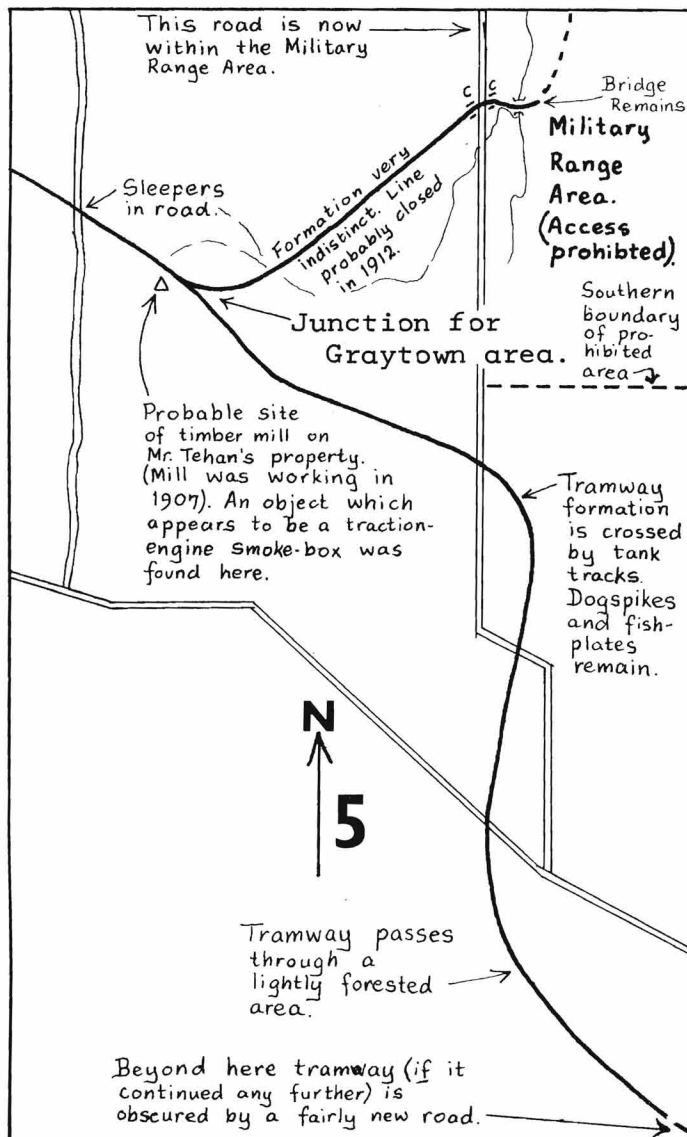 This road is now
within the Military
Range Area.
C C
Bridge
Remains
Military
Range
Area.
(Access
prohibted).
Sleepers
in road.
Formation very
indistinct. Line
probably closed
in 1912.
Southern
boundary
of pro-
hibited
area
Junction for
Graytown area.
Probable site
of timber mill on
Mr. Tehan's property.
(Mill was working in
1907). An object which
appears to be a traction-
engine smoke-box was
found here.
Tramway
formation
is crossed
by tank
tracks.
Dogspikes
and fish-
plates
remain.
N
5
Tramway passes
through a
lightly forested
area.
Beyond here tramway (if it
continued any further) is
obscured by a fairly new road.